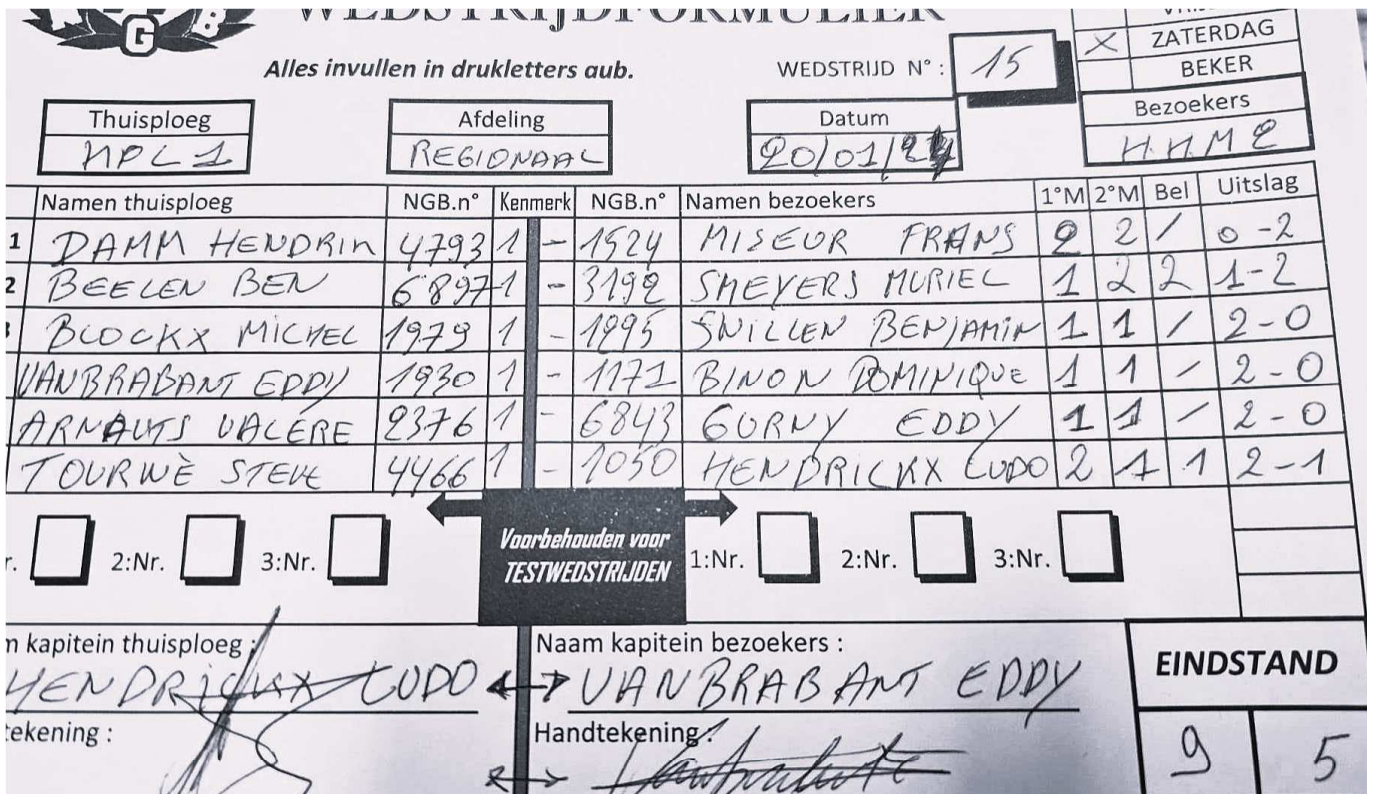 G B
WEDSTRIJDFORMULIER
Alles invullen in drukletters aub.
WEDSTRIJD N° : 15
X ZATERDAG
BEKER
Thuisploeg
HPL 1
Afdeling
REGIONAAL
Datum
20/01/24
Bezoekers
H.H.M 2
Namen thuisploeg NGB.n° Kenmerk NGB.n° Namen bezoekers 1°M 2°M Bel Uitslag
1 DAMM HENDRIK 4793 1 - 1524 MISEUR FRANS 2 2 / 0-2
2 BEELEN BEN 6897 1 - 3192 SMEYERS MURIEL 1 2 2 1-2
BLOCKX MICHEL 1979 1 - 1295 SWILLEN BENJAMIN 1 1 / 2-0
VANBRABANT EDDY 1930 1 - 1171 BINON DOMINIQUE 1 1 / 2-0
ARNAUTS VALERE 2376 1 - 6843 GURNY EDDY 1 1 / 2-0
TOURWÈ STEVE 4466 1 - 1050 HENDRICKX LUDO 2 1 1 2-1
r. 2:Nr. 3:Nr. Voorbehouden voor TESTWEDSTRIJDEN 1:Nr. 2:Nr. 3:Nr.
m kapitein thuisploeg :
HENDRICKX LUDO
tekening :
Naam kapitein bezoekers :
VANBRABANT EDDY
Handtekening :
EINDSTAND
9 5